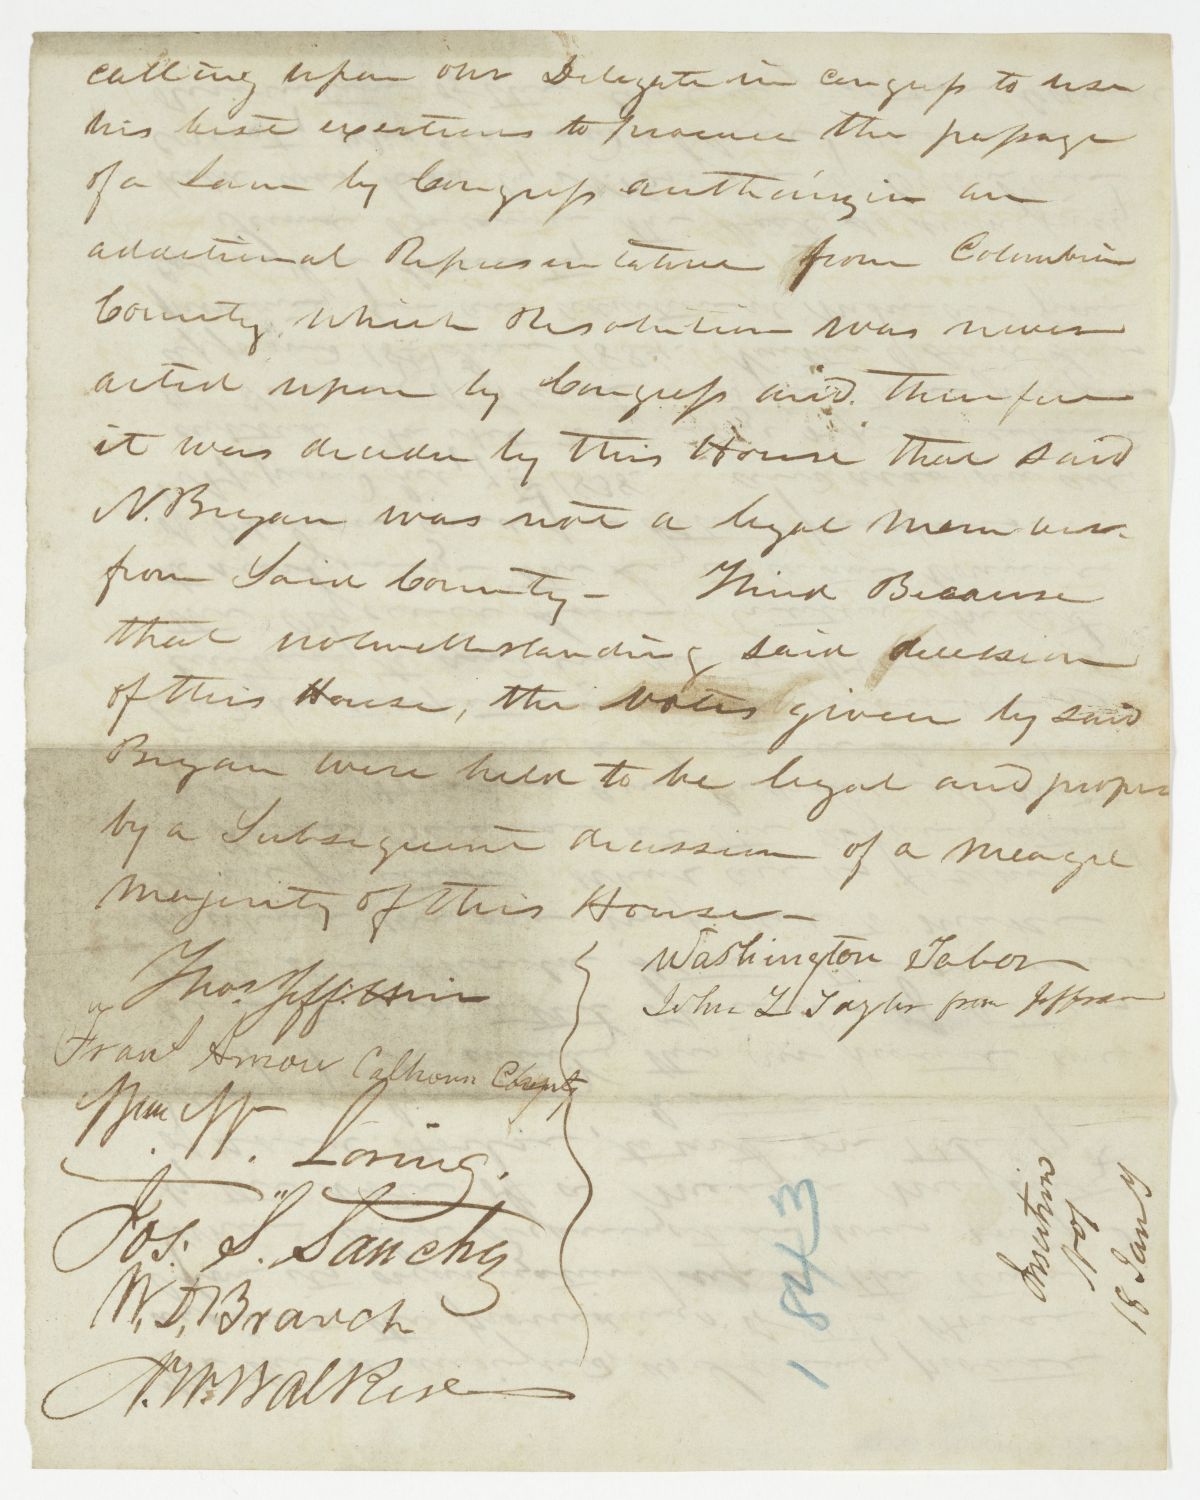 calling upon our Delegate in congress to use
his best exertions to procure the passage
of a Law by Congress authorizin an
additional Representative from Columbia
County, which Resolution was never
acted upon by Congress and therefore
it was decided by this House that said
N. Bryan was not a legal member
from Said County - Third Because
that notwithstanding said decission
of this House, the votes given by said
Bryan were held to be legal and proper
by a Subsequent decission of a meagre
majority of this House -
Washington Tabor
John L Taylor from Jefferson
Thos.
Fran Arnow Calhoun County
Loring.
Jos. S. Sanchez
W. D. Branch
W. Walker
1843
No 1
18 Jany